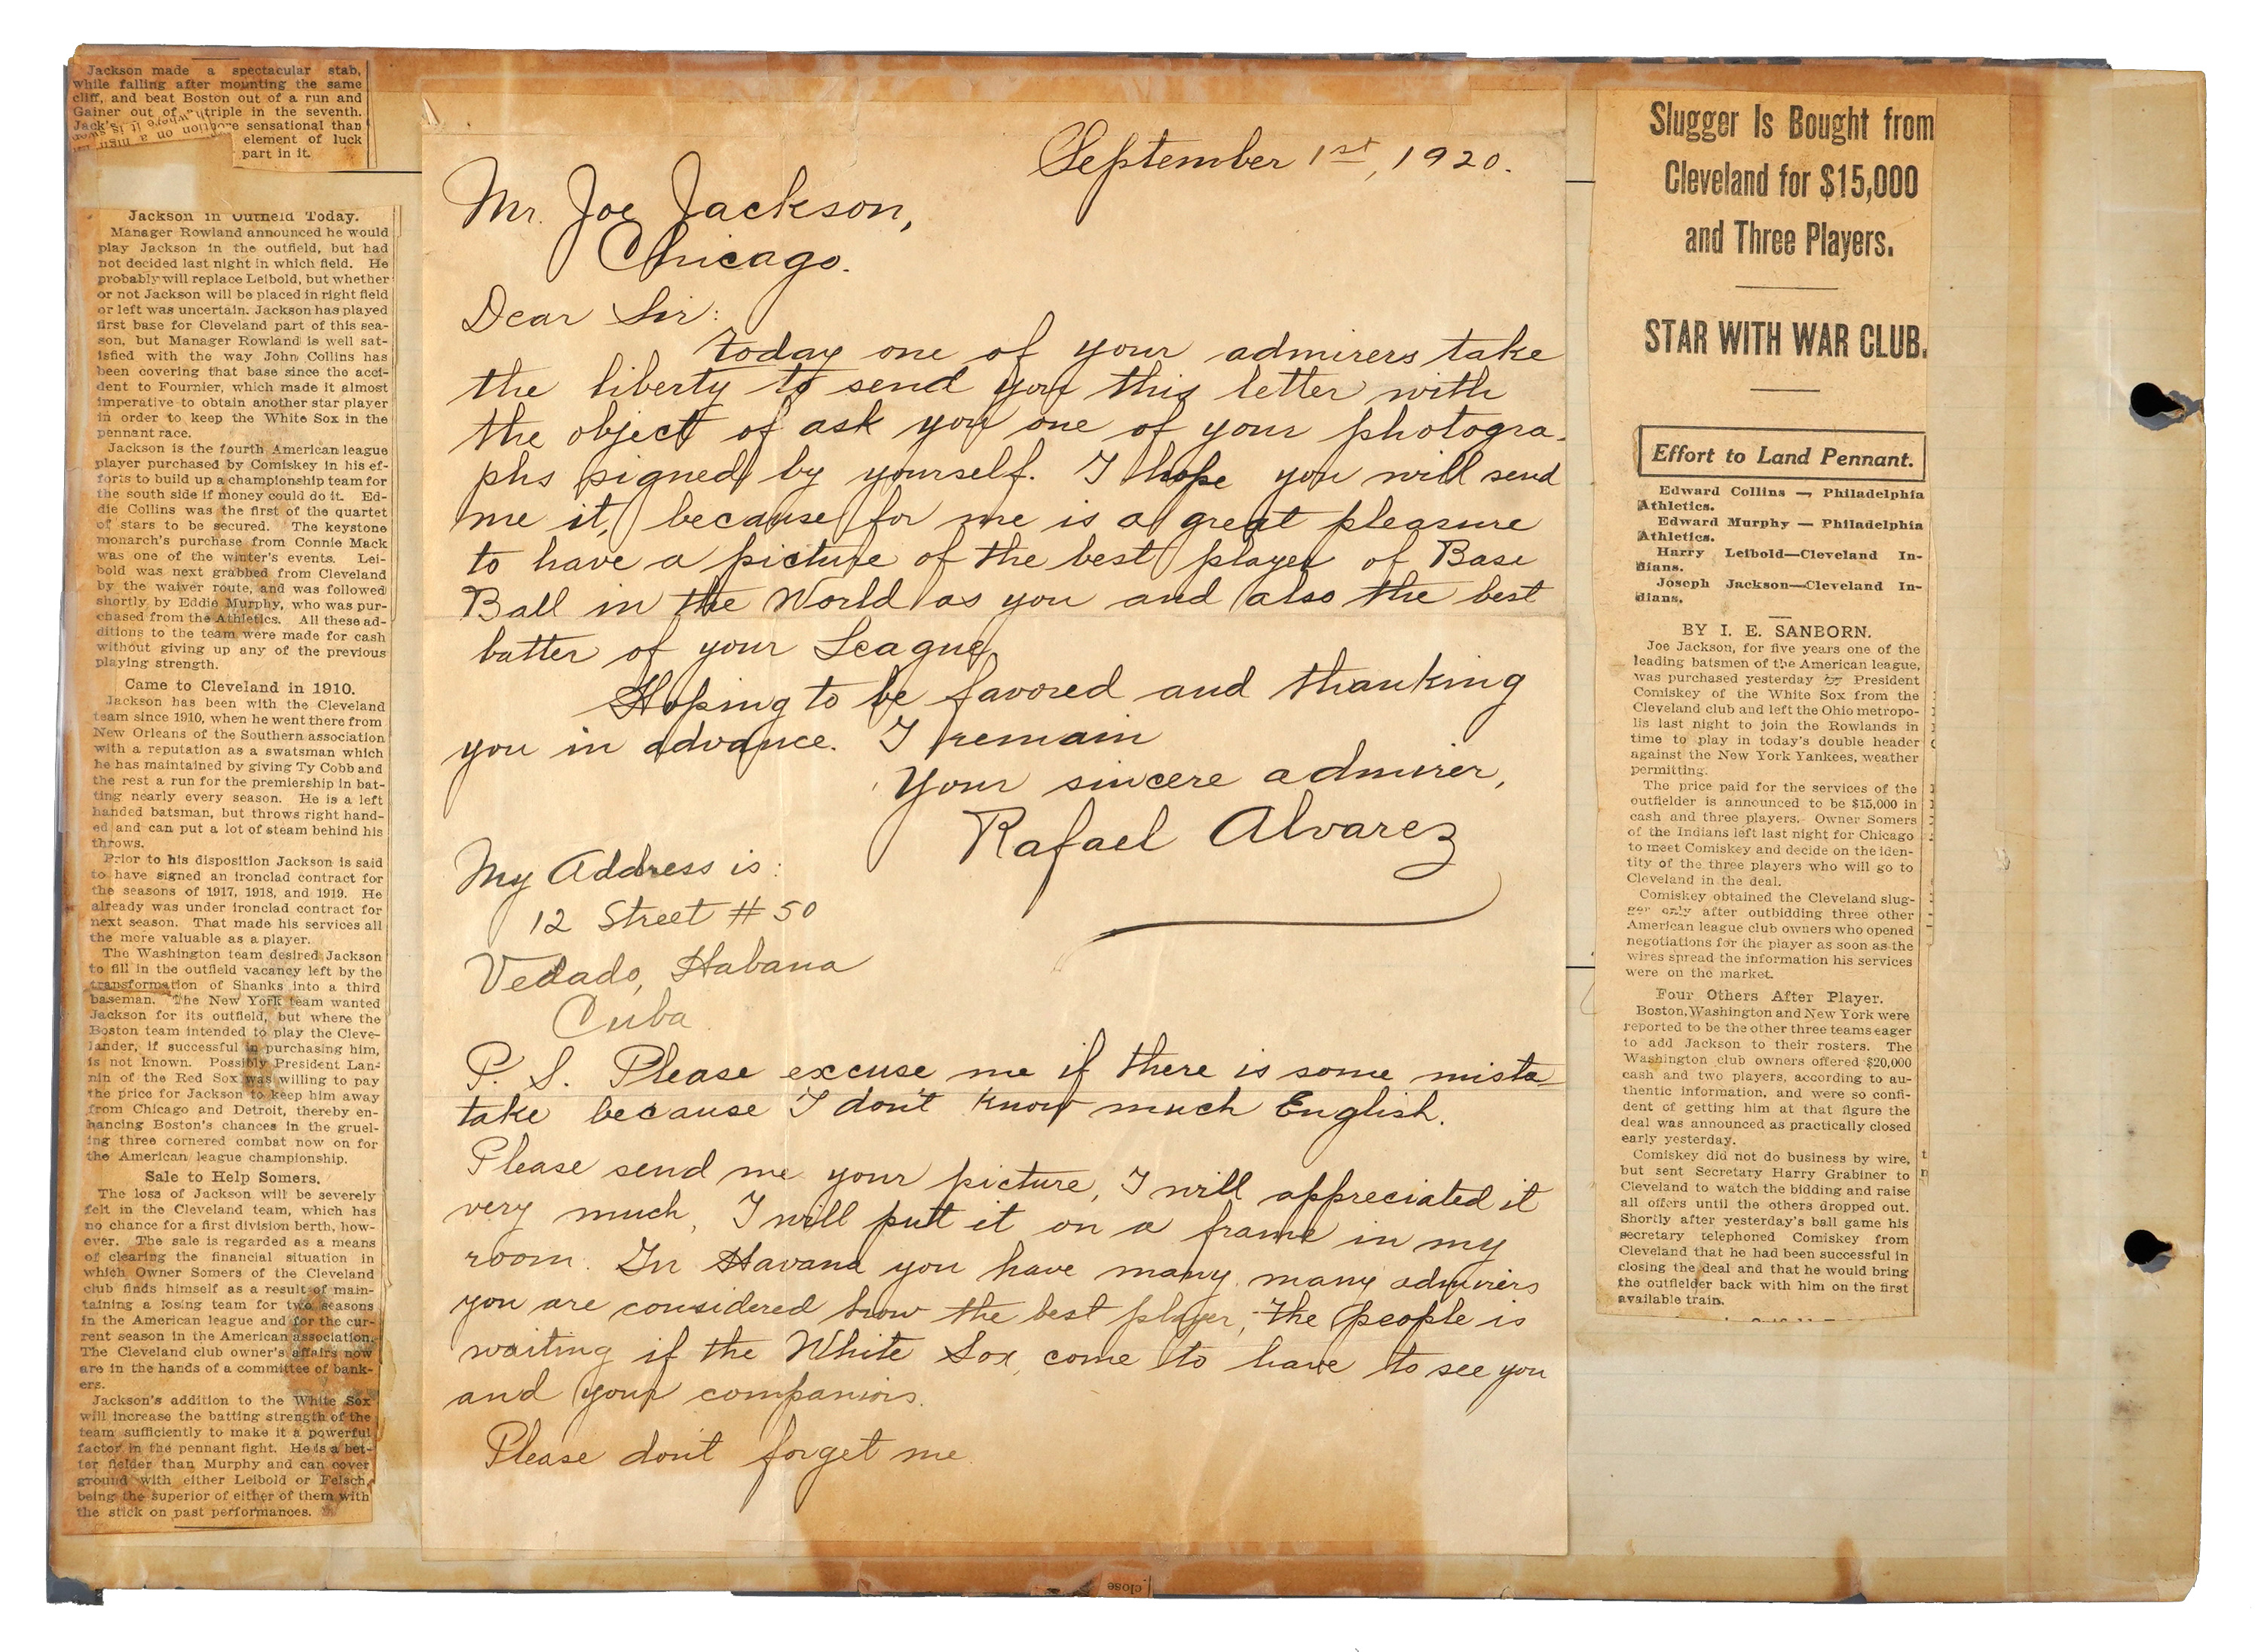 Jackson made a spectacular stab,
while falling after mounting the same
cliff, and beat Boston out of a run and
Gainer out of triple in the seventh.
Jack's sensational than
element of luck
part in it.
Jackson in Outfield Today.
Manager Rowland announced he would
play Jackson in the outfield, but had
not decided last night in which field. He
probably will replace Leibold, but whether
or not Jackson will be placed in right field
or left was uncertain. Jackson has played
first base for Cleveland part of this sea-
son, but Manager Rowland is well sat-
isfied with the way John Collins has
been covering that base since the acci-
dent to Fournier, which made it almost
imperative to obtain another star player
in order to keep the White Sox in the
pennant race.
Jackson is the fourth American league
player purchased by Comiskey in his ef-
forts to build up a championship team for
the south side if money could do it. Ed-
die Collins was the first of the quartet
of stars to be secured. The keystone
monarch's purchase from Connie Mack
was one of the winter's events. Lei-
bold was next grabbed from Cleveland
by the waiver route, and was followed
shortly by Eddie Murphy, who was pur-
chased from the Athletics. All these ad-
ditions to the team were made for cash
without giving up any of the previous
playing strength.
Came to Cleveland in 1910.
Jackson has been with the Cleveland
team since 1910, when he went there from
New Orleans of the Southern association
with a reputation as a swatsman which
he has maintained by giving Ty Cobb and
the rest a run for the premiership in bat-
ting nearly every season. He is a left
handed batsman, but throws right hand-
ed and can put a lot of steam behind his
throws.
Prior to his disposition Jackson is said
to have signed an ironclad contract for
the seasons of 1917, 1918, and 1919. He
already was under ironclad contract for
next season. That made his services all
the more valuable as a player.
The Washington team desired Jackson
to fill in the outfield vacancy left by the
transformation of Shanks into a third
baseman. The New York team wanted
Jackson for its outfield, but where the
Boston team intended to play the Cleve-
lander, if successful in purchasing him,
is not known. Possibly President Lan-
nin of the Red Sox was willing to pay
the price for Jackson to keep him away
from Chicago and Detroit, thereby en-
hancing Boston's chances in the gruel-
ing three cornered combat now on for
the American league championship.
Sale to Help Somers.
The loss of Jackson will be severely
felt in the Cleveland team, which has
no chance for a first division berth, how-
ever. The sale is regarded as a means
of clearing the financial situation in
which Owner Somers of the Cleveland
club finds himself as a result of main-
taining a losing team for two seasons
in the American league and for the cur-
rent season in the American association.
The Cleveland club owner's affairs now
are in the hands of a committee of bank-
ers.
Jackson's addition to the White Sox
will increase the batting strength of the
team sufficiently to make it a powerful
factor in the pennant fight. He is a bet-
ter fielder than Murphy and can cover
ground with either Leibold or Felsch,
being the superior of either of them with
the stick on past performances.
September 1st, 1920.
Mr. Joe Jackson,
Chicago.
Dear Sir:
today one of your admirers take
the liberty to send you this letter with
the object of ask you one of your photogra-
phs signed by yourself. I hope you will send
me it, because for me is a great pleasure
to have a picture of the best player of Base
Ball in the World as you and also the best
batter of your League.
Hoping to be favored and thanking
you in advance. I remain
Your sincere admirer,
Rafael Alvarez
My Address is:
12 Street # 50
Vedado, Habana
Cuba
P. S. Please excuse me if there is some mista-
take because I don't know much English.
Please send me your picture, I will appreciated it
very much, I will put it on a frame in my
room. In Havana you have many, many admirers
you are considered how the best player, the people is
waiting if the White Sox come to have to see you
and your companions.
Please don't forget me.
Slugger Is Bought from
Cleveland for $15,000
and Three Players.
STAR WITH WAR CLUB.
Effort to Land Pennant.
Edward Collins — Philadelphia
Athletics.
Edward Murphy — Philadelphia
Athletics.
Harry Leibold—Cleveland In-
dians.
Joseph Jackson—Cleveland In-
dians.
BY I. E. SANBORN.
Joe Jackson, for five years one of the
leading batsmen of the American league,
was purchased yesterday by President
Comiskey of the White Sox from the
Cleveland club and left the Ohio metropo-
lis last night to join the Rowlands in
time to play in today's double header
against the New York Yankees, weather
permitting.
The price paid for the services of the
outfielder is announced to be $15,000 in
cash and three players. Owner Somers
of the Indians left last night for Chicago
to meet Comiskey and decide on the iden-
tity of the three players who will go to
Cleveland in the deal.
Comiskey obtained the Cleveland slug-
ger only after outbidding three other
American league club owners who opened
negotiations for the player as soon as the
wires spread the information his services
were on the market.
Four Others After Player.
Boston, Washington and New York were
reported to be the other three teams eager
to add Jackson to their rosters. The
Washington club owners offered $20,000
cash and two players, according to au-
thentic information, and were so confi-
dent of getting him at that figure the
deal was announced as practically closed
early yesterday.
Comiskey did not do business by wire,
but sent Secretary Harry Grabiner to
Cleveland to watch the bidding and raise
all offers until the others dropped out.
Shortly after yesterday's ball game his
secretary telephoned Comiskey from
Cleveland that he had been successful in
closing the deal and that he would bring
the outfielder back with him on the first
available train.
close